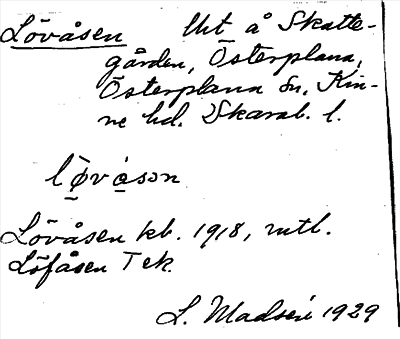 Lövåsen Uht å Skatte-
gården, Österplana,
Österplana sn, Kin-
ne hd. Skarab. l.
lø̣våsən
Lövåsen kb. 1918, mtl.
Löfåsen Tek.
L. Madsén 1929